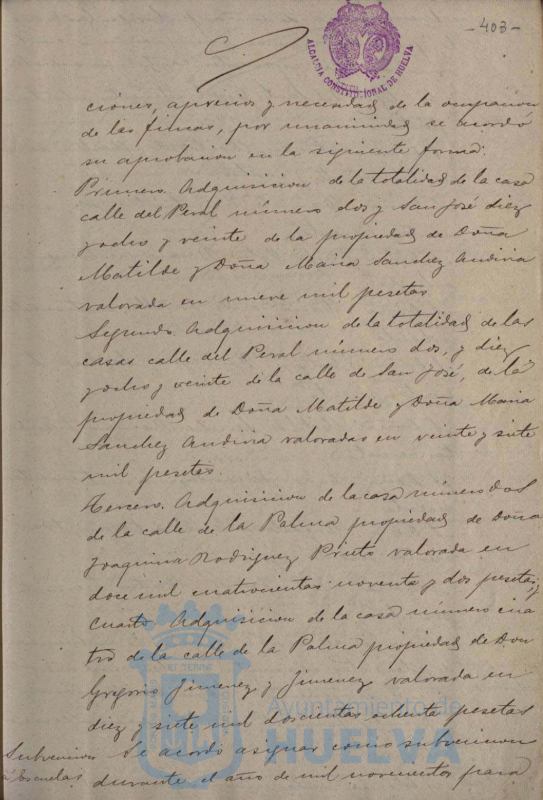 -403-
ALCALDIA CONSTITUCIONAL DE HUELVA
ciones, aprecios y necesidad de la ocupacion
de las fincas, por unanimidad se acordó
su aprobacion en la siguiente forma:
Primero. Adquisicion de la totalidad de la casa
calle del Peral número dos y San José diez
y ocho y veinte de la propiedad de Doña
Matilde y Doña Maria Sanchez
valorada en nueve mil pesetas
Segundo. Adquisicion de la totalidad de las
casas calle del Peral número dos, y diez
y ocho y veinte de la calle de San José, de la
propiedad de Doña Matilde y Doña Maria
Sanchez valoradas en veinte y siete
mil pesetas.
Tercero. Adquisicion de la casa número dos
de la calle de la Palma propiedad de Doña
Joaquina Rodriguez Prieto valorada en
doce mil cuatrocientas noventa y dos pesetas, y
Cuarto. Adquisicion de la casa número cua
tro de la calle de la Palma propiedad de Don
Gregorio Jimenez y Jimenez valorada en
diez y siete mil doscientas ochenta pesetas
Subvencion
á Escuelas
Se acordó asignar como subvencion
durante el año de mil novecientos para
Ayuntamiento de
HUELVA